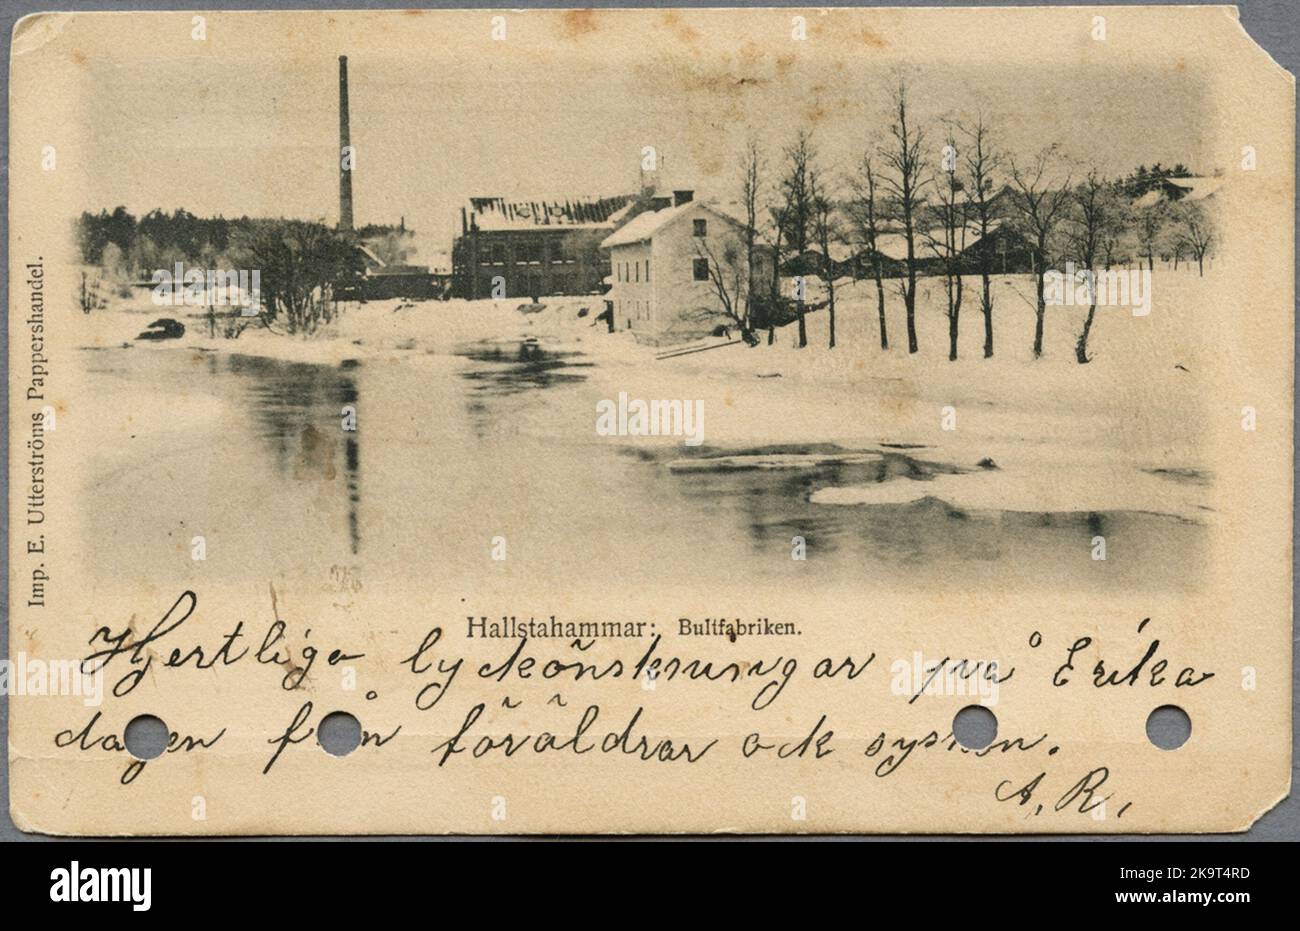 Imp. E. Utterströms Pappershandel.
Hallstahammar: Bultfabriken.
Hjertliga lyckönskningar på Erika
dagen från föräldrar ock syskon.
A. R.
alamy
Image ID: 2K9T4RD
www.alamy.com